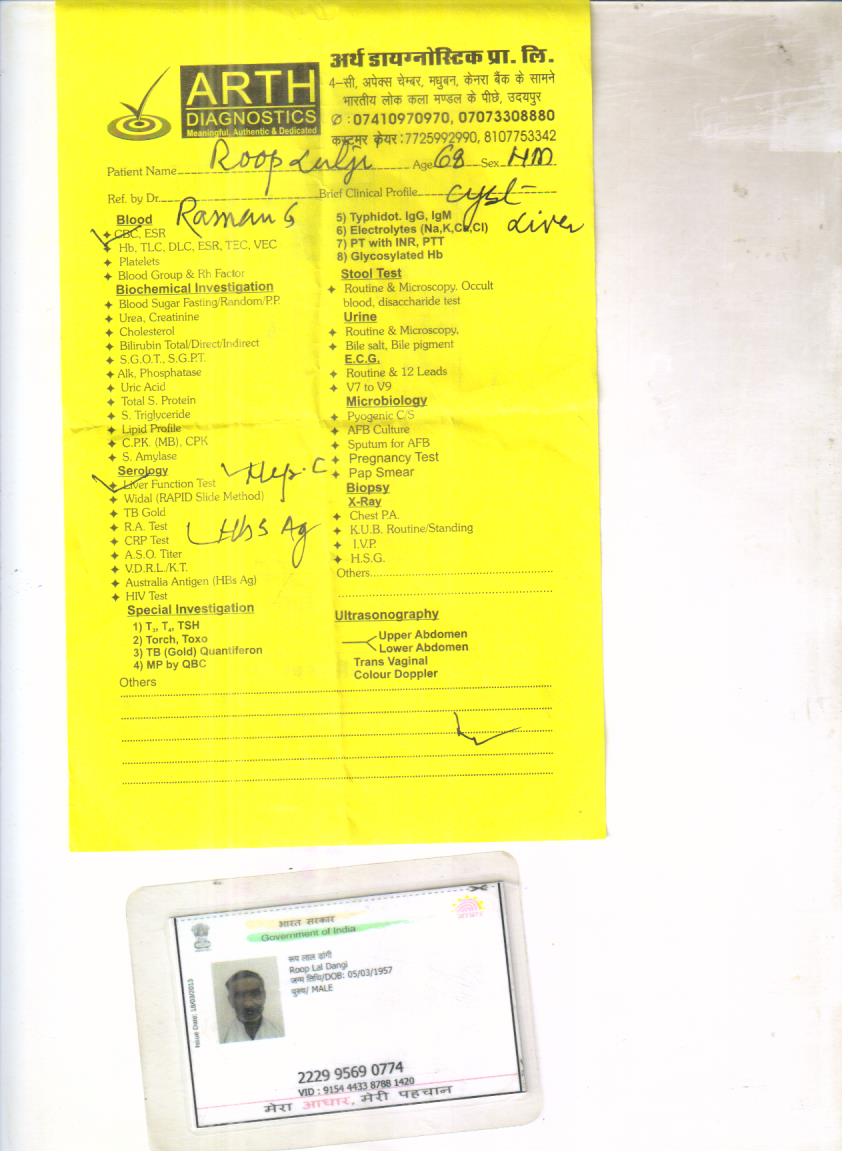 ARTH
DIAGNOSTICS
Meaningful, Authentic & Dedicated
अर्थ डायग्नोस्टिक प्रा. लि.
4–सी, अपेक्स चेम्बर, मधुबन, केनरा बैंक के सामने
भारतीय लोक कला मण्डल के पीछे, उदयपुर
✆ : 07410970970, 07073308880
कस्टमर केयर : 7725992990, 8107753342
Patient Name Roop Lalji Age 68 Sex
Ref. by Dr. Raman G Brief Clinical Profile Cyst Liver
Blood
CBC, ESR
Hb, TLC, DLC, ESR, TEC, VEC
Platelets
Blood Group & Rh Factor
Biochemical Investigation
Blood Sugar Fasting/Random/P.P.
Urea, Creatinine
Cholesterol
Bilirubin Total/Direct/Indirect
S.G.O.T., S.G.P.T.
Alk, Phosphatase
Uric Acid
Total S. Protein
S. Triglyceride
Lipid Profile
C.P.K. (MB), CPK
S. Amylase
Serology
Liver Function Test Hep. C
Widal (RAPID Slide Method)
TB Gold
R.A. Test
CRP Test HbsAg
A.S.O. Titer
V.D.R.L./K.T.
Australia Antigen (HBs Ag)
HIV Test
Special Investigation
1) T3, T4, TSH
2) Torch, Toxo
3) TB (Gold) Quantiferon
4) MP by QBC
Others
5) Typhidot. IgG, IgM
6) Electrolytes (Na,K,Ca,Cl)
7) PT with INR, PTT
8) Glycosylated Hb
Stool Test
Routine & Microscopy. Occult
blood, disaccharide test
Urine
Routine & Microscopy,
Bile salt, Bile pigment
E.C.G.
Routine & 12 Leads
V7 to V9
Microbiology
Pyogenic C/S
AFB Culture
Sputum for AFB
Pregnancy Test
Pap Smear
Biopsy
X-Ray
Chest P.A.
K.U.B. Routine/Standing
I.V.P.
H.S.G.
Others
Ultrasonography
Upper Abdomen
Lower Abdomen
Trans Vaginal
Colour Doppler
भारत सरकार
Government of India
आधार
Issue Date: 18/03/2013
रूप लाल डांगी
Roop Lal Dangi
जन्म तिथि/DOB: 05/03/1957
पुरुष/ MALE
2229 9569 0774
VID : 9154 4433 8788 1420
मेरा आधार, मेरी पहचान